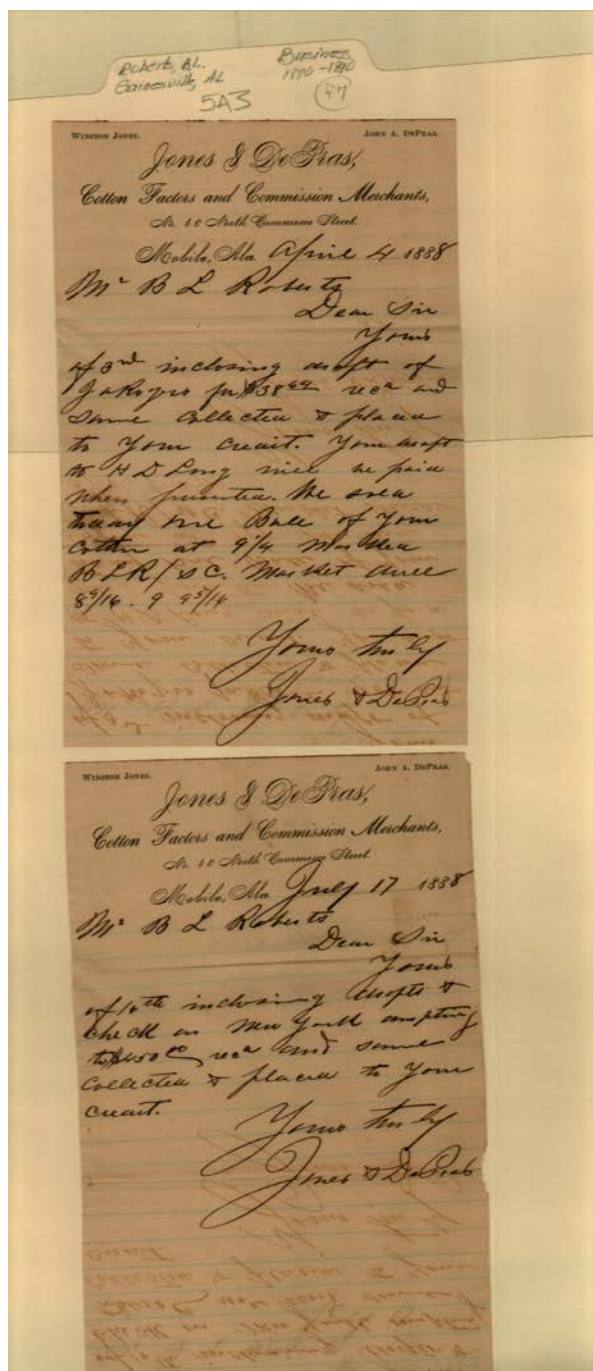 Roberts, BL.
Gainesville, AL
Business
1870-1890
5A3
47
WINSTON JONES.
JOHN A. DEPRAS.
Jones & DePras,
Cotton Factors and Commission Merchants,
No. 60 North Commerce Street.
Mobile, Ala. April 4 1888
Mr B L Roberts
Dear Sir
Yours
of 3rd inclosing draft of
for $38 recd and
same collected & placed
to your credit. Your draft
to H D Long will be paid
when presented. We sold
today one Bale of your
cotton at 9 1/4 marked
BLR/SC. Market dull
9 9 5/16
Yours truly
Jones & DePras
WINSTON JONES.
JOHN A. DEPRAS.
Jones & DePras,
Cotton Factors and Commission Merchants,
No. 60 North Commerce Street.
Mobile, Ala. July 17 1888
Mr B L Roberts
Dear Sir
Yours
of 16th inclosing drafts &
check on New York amtting
to recd and same
collected & placed to your
credit.
Yours truly
Jones & DePras